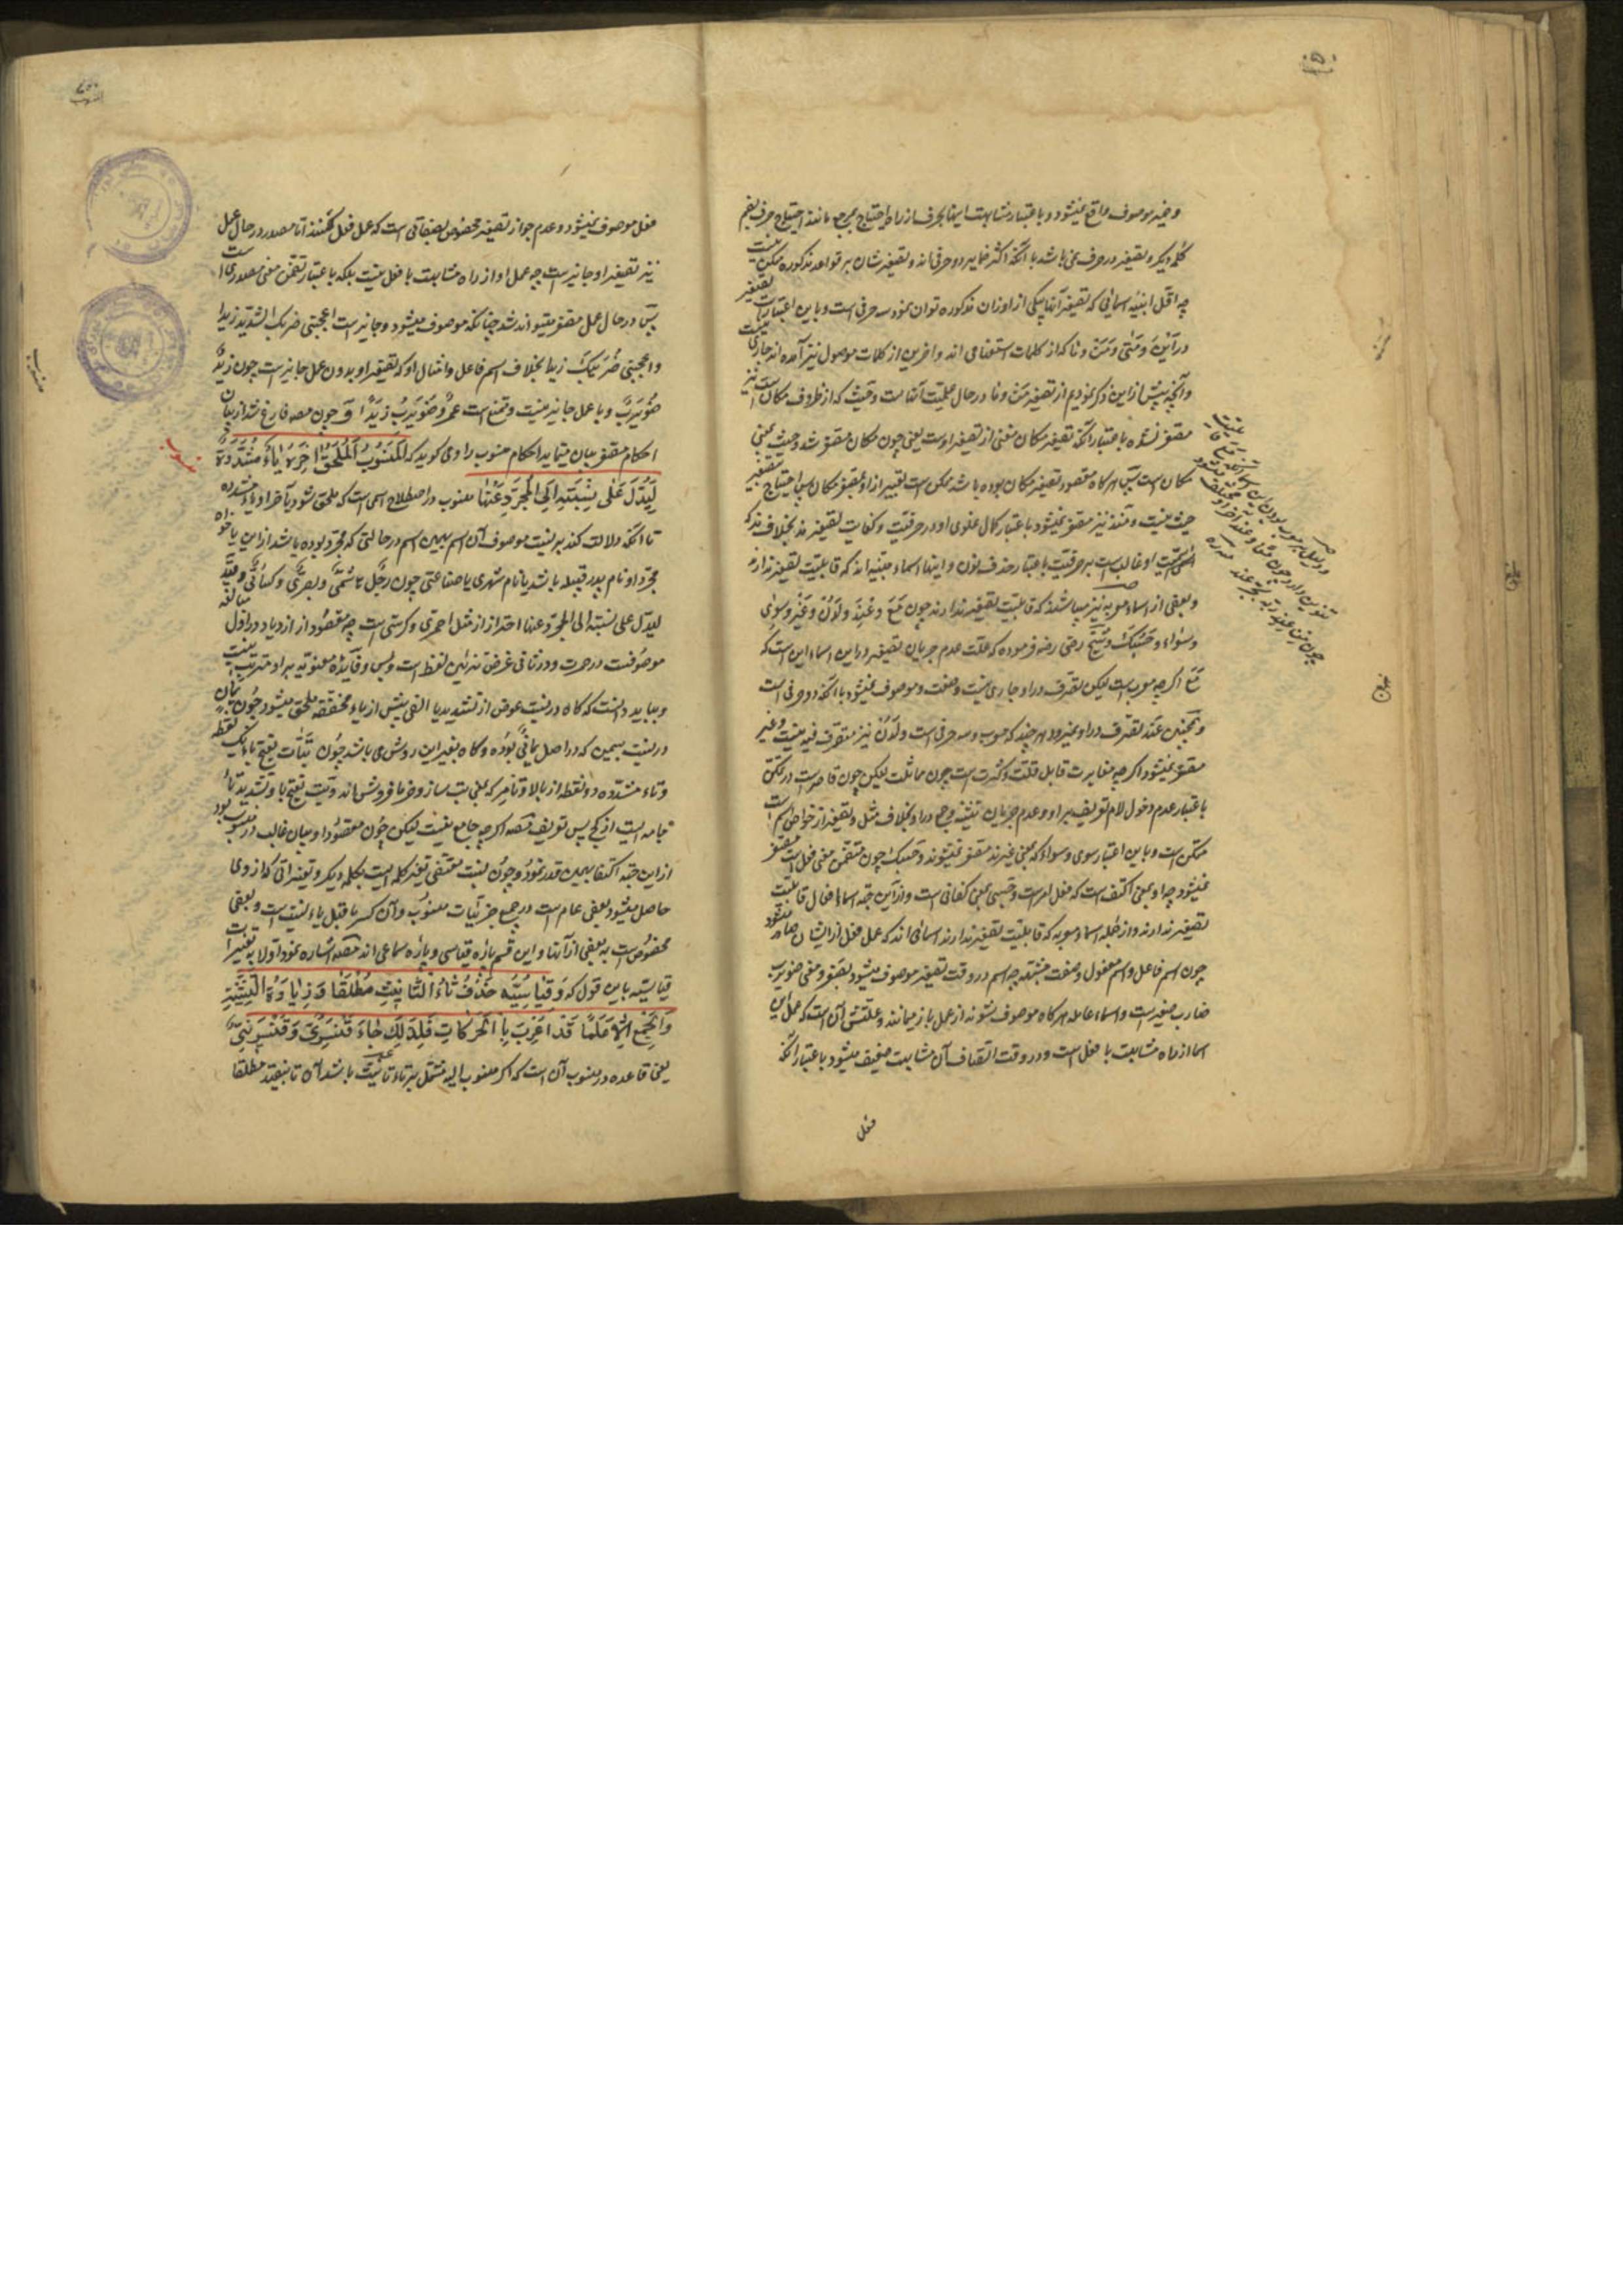 و ضمیر موصوف واقع نمیشود و باعتبار مشابهت اینها بحرف از راه احتیاج بمرجع مانند احتیاج حرف بضم
کلمه دیگر و تصغیر در حرف نمی باشد با آنکه اکثر ضمایر دو حرفی اند و تصغیرشان بر قواعد مذکوره ممکن نیست
چه اقل ابنیه اسمائی که تصغیر آنها بیکی از اوزان مذکوره توان نمود سه حرفی است و باین اعتبارات تصغیر
در این و متی و من و ما که از کلمات استفهامی اند و اخرین از کلمات موصول نیز آمده اند جاری نیست
و آنچه پیش از این ذکر نمودیم از تصغیر من و ما در حال علمیت آنها است و حیث که از ظروف مکان است نیز
مصغر نشده باعتبار آنکه تصغیر مکان مغنی از تصغیر اوست یعنی چون مکان مصغر شد و حیث بمعنی
مکان است پس هرگاه مقصود تصغیر مکان بوده باشد ممکن است تعبیر از او بمصغر مکان پس احتیاج بتصغیر
حیث نیست و منذ نیز مصغر نمیشود باعتبار کمال غلوی او در حرفیت و کفایت تصغیر مذ بخلاف مذ که
اسمیت او غالب است بر حرفیت باعتبار حذف نون و اینها اسماء مبنیه اند که قابلیت تصغیر ندارند
و بعضی از اسماء معربه نیز میباشند که قابلیت تصغیر ندارند چون مَعَ و عِندَ و لَدُن و غَیر و سِوی
و سَواء و حَسبُکَ و شیخ رضی رضه فرموده که علت عدم جریان تصغیر در این اسماء این است که
مَعَ اگرچه معرب است لیکن تصرف در او جاری نیست و صفت و موصوف نمیشود با آنکه دو حرفی است
و همچنین عند تصرف در او نمیرود هر چند که معرب و سه حرفی است و لَدُن نیز متصرف فیه نیست و غیر
مصغر نمیشود اگرچه مغایرت قابل قلت و کثرت است چون مماثلت لیکن چون قاصر است در تمکن
باعتبار عدم دخول لام تعریف بر او و عدم جریان تثنیه و جمع در او بخلاف مثل و تصغیر از خواص اسم
متمکن است و باین اعتبار سوی و سواء که بمعنی غیرند مصغر نمیشوند و حسبک چون متضمن معنی فعل است مصغر
نمیشود چه او بمعنی اکتف است که فعل امر است و حسبی بمعنی کفانی است و از این جهه اسماء افعال قابلیت
تصغیر ندارند و از جمله اسماء معربه که قابلیت تصغیر ندارند اسمائی اند که عمل فعل از ایشان صادر میشود
چون اسم فاعل و اسم مفعول و صفت مشبهه چه اسم در وقت تصغیر موصوف میشود بصغر و معنی ضویرب
ضارب صغیر است و اسماء عامله هرگاه موصوف شوند از عمل باز میمانند و علتش آن است که عمل این
اسما از راه مشابهت با فعل است و در وقت اتصاف آن مشابهت ضعیف میشود باعتبار آنکه
فعل
فعل موصوف نمیشود و عدم جواز تصغیر مخصوص بصفاتی است که عمل فعل کنند اما مصدر در حال عمل
نیز تصغیر او جایز است چه عمل او از راه مشابهت با فعل نیست بلکه باعتبار تضمن معنی مصدری است
پس در حال عمل مصغر میتواند شد چنانکه موصوف میشود و جایز است اعجبنی ضربک الشدید زیدا
و اعجبنی ضُرَیبُکَ زیدا بخلاف اسم فاعل و امثال او که تصغیر او بدون عمل جایز است چون زیدٌ
ضُوَیرِبٌ و با عمل جایز نیست و ممتنع است عمروٌ ضُوَیرِبٌ زیداً و چون مصه فارغ شد از بیان
احکام مصغر بیان مینماید احکام منسوب را و می گوید که اَلْمَنْسُوبُ اَلْمُلْحَقُ اخِرُهُ یاءٌ مُشَدَّدَةٌ
لِیَدُلَّ عَلی نِسْبَتِهِ اِلَی الْمُجَرَّدِ عَنْهَا منسوب در اصطلاح اسمی است که ملحق شود بآخر او یاء مشدده
تا آنکه دلالت کند بر نسبت موصوف آن اسم بهمین اسم در حالتی که مجرد بوده باشد از این یا خواه
مجرد او نام پدر قبیله باشد یا نام شهری یا صناعتی چون رجل هاشمی و بصری و کسائی و قید
لیدل علی نسبته الی المجرد عنها احتراز از مثل احمری و کرسی است چه مقصود از ازدیاد در اول مبالغه
موصوفست در حمرت و در ثانی غرض تزئین لفظ است و بس و فایدهٔ معنویه بر او مترتب نیست
و بباید دانست که گاه در نسبت عوض از تشدید یا الفی پیش از یاء مخففه ملحق میشود چون یمانٍ
در نسبت بیمین که در اصل یمانیّ بوده و گاه بغیر این روش می باشد چون بتّات بفتح باء یک نقطه
و تاء مشدده دو نقطه از بالا و تامر که بمعنی بت ساز و خرما فروش اند و بت بفتح با و تشدید تا
جامه ایست از کج پس تعریف مصه اگرچه جامع نیست لیکن چون مقصود او بیان غالب در منسوب بود
از این جهه اکتفا بهمین قدر نمود و چون نسبت مقتضی تغیر کلمه ایست بکلمه دیگر و تغییراتی که از وی
حاصل میشود بعضی عام است در جمیع جزئیات منسوب و آن کسر ماقبل یاء نسبت است و بعضی
مخصوص است به بعضی از آنها و این قسم پاره قیاسی و پاره سماعی اند مصه اشاره نمود اولا به تغییرات
قیاسیه باین قول که وَ قِیاسِیُّهُ حَذْفُ تَاءِ التَّانِیثِ مُطْلَقًا وَ زِیادَةِ التَّثْنِیَةِ
وَ الْجَمْعِ اِلَّا عَلَمًا قَدْ اُعْرِبَ بِالْحَرَکَاتِ فَلِذَلِکَ جَاءَ قِنَّسْرِیٌّ وَ قِنَّسْرِینِیٌّ
یعنی قاعده در منسوب آن است که اگر منسوب الیه مشتمل بر تاء تانیث باشد آن تا بیفتد مطلقا
منسوب